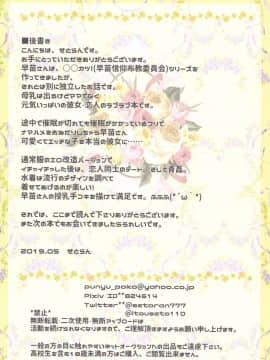 ■後書き
こんにちは、せとらんです。
お手にとっていただきありがとうございます。
早苗さんは、○○カツ!(早苗信仰布教委員会)シリーズを
作ってきましたが、
それとは別に独立したお話です。
母乳は出るけどママでなく
元気いっぱいの彼女・恋人のラブラブ本です。
途中で催眠が切れても催眠がかかっているフリで
ナマハメをおねだりしちゃう早苗さん
可愛くてエッチな子を本当の彼女に……
通常服のエロ改造バージョンで
イチャイチャした後は、恋人同士のデート、そして青姦、
水着は流行のデザインを調べて
着せてあげるのが楽しい!
早苗さんの授乳手コキを描けて満足です。ふふふ(*´ω`*)
それでは、ここまで読んで下さりありがとうございます
また次の本でもお会いできましたらうれしいです。
2019.05 せとらん
punyu_poko@yahoo.co.jp
Pixiv ID**824614
Twitter**@setoran777
*禁止* @itousato110
無断転載・二次使用・無断アップロードは
活動を続けられなくなりますので、ご理解頂きますようお願い申し上げます。
一般の方の目に触れやすいネットオークションへの出品をご遠慮下さい。
高校生を含めた18歳未満の方はご購入、ご閲覧出来ません。